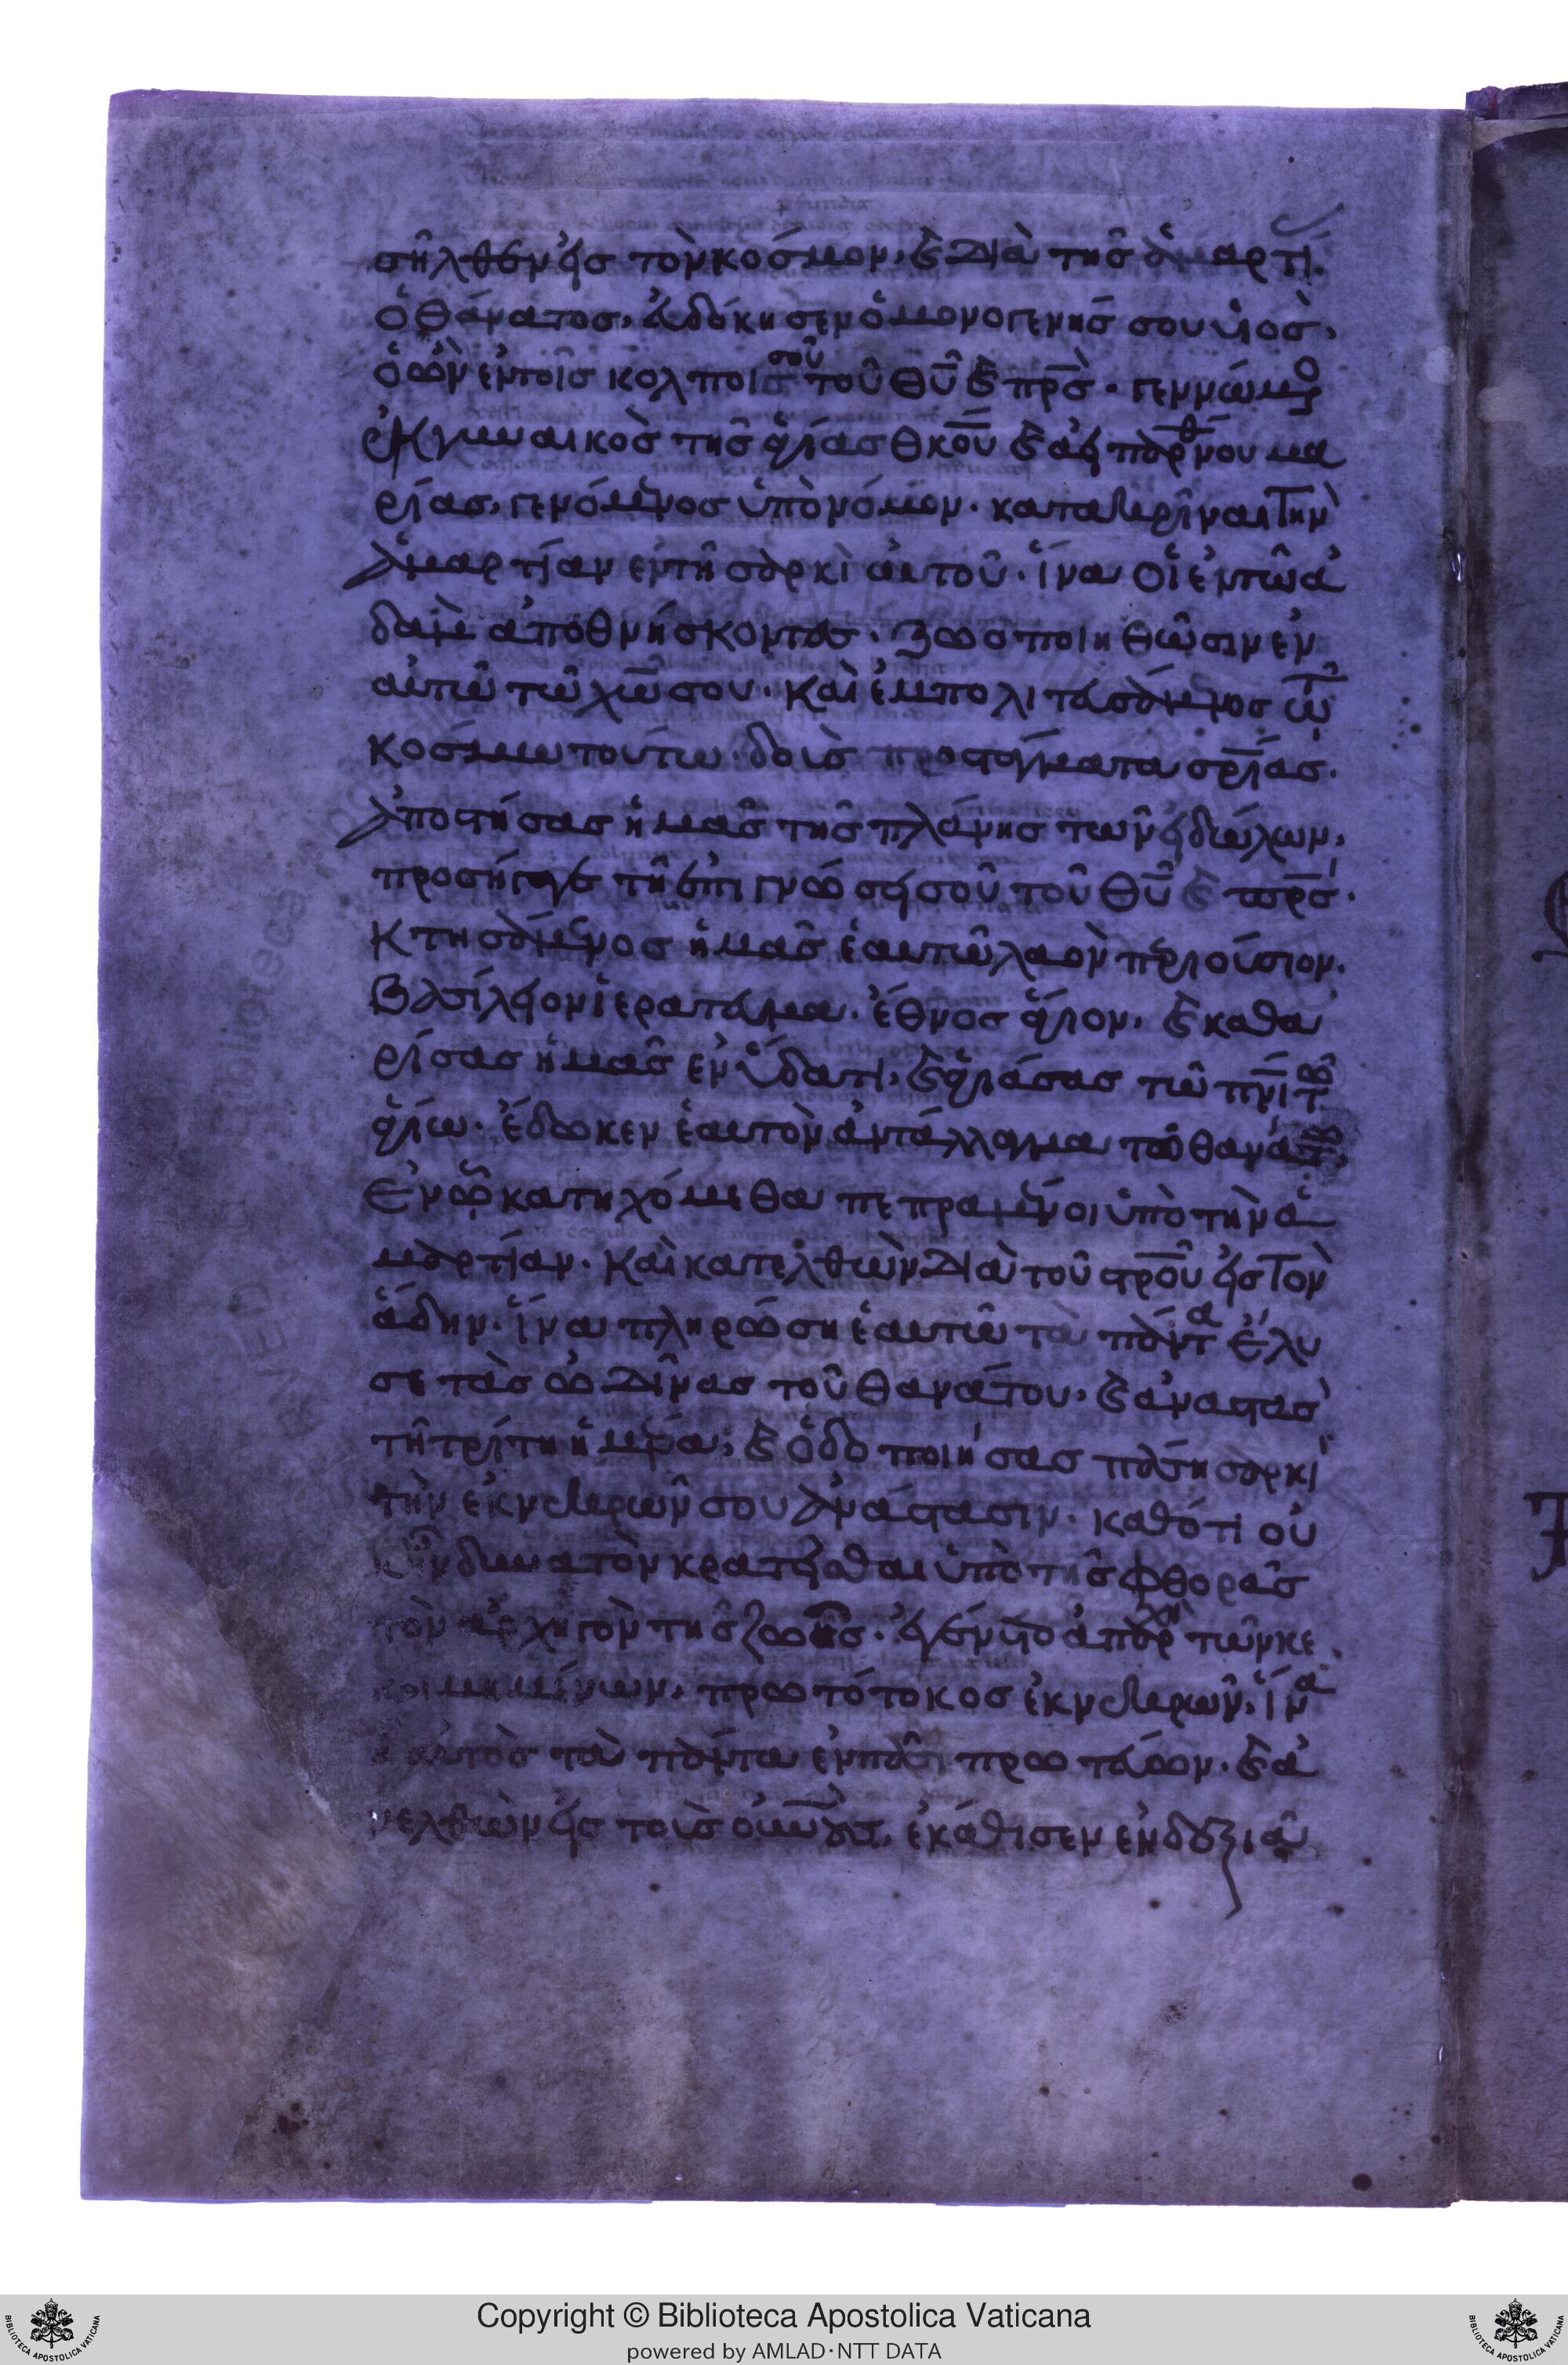 σῆλθεν εἰς τὸν κόσμον, καὶ διὰ τῆς ἁμαρτί.
ὁ θάνατος, εὐδόκησεν ὁ μονογενής σου υἱὸς,
ὁ ὢν ἐν τοῖς κόλποις σοῦ τοῦ θῡ καὶ πρ̅ς· γεννώμενο
ἐκ γυναικὸς τῆς ἁγίας θκ̅ου καὶ ἀειπαρθένου μα
ρίας, γενόμενος ὑπὸ νόμον· κατακρῖναι τὴν
ἁμαρτίαν ἐν τῆ σαρκὶ αὐτοῦ· ἵνα οἱ ἐν τῶ ἀ
δὰμ ἀποθνήσκοντες. ζωοποιηθῶσιν ἐν
αὐτῶ τῶ χω̅ σου· καὶ ἐμπολιτευσάμενος τῶ
κόσμω τούτω· δοὺς προστάγματα σρ̅ίας·
ἀποστήσας ἡμᾶς τῆς πλάνης τῶν εἰδώλων,
προσήγαγε τῆ ἐπιγνώσει σοῦ τοῦ θῡ καὶ πρ̅ς·
κτησάμενος ἡμᾶς ἑαυτῶ λαὸν περιούσιον.
βασίλειον ἱεράτευμα· ἔθνος ἅγιον, καὶ καθα
ρίσας ἡμᾶς ἐν ὕδατι, καὶ ἁγιάσας τῶ πν̅ι τῶ
ἁγίω· ἔδωκεν ἑαυτὸν ἀντάλλαγμα τῶ θανάτω,
ἐν ὧ κατηχόμεθα πεπραμένοι ὑπὸ τὴν ἁ
μαρτίαν· καὶ κατελθὼν διὰ τοῦ στρ̅οῦ εἰς τὸν
ἅδην· ἵνα πληρώση ἑαυτῶ τὰ πάντα ἔλυ
σε τὰς ὠδῖνας τοῦ θανάτου, καὶ ἀναστὰς
τῆ τρίτη ἡμέρα, καὶ ὁδοποιήσας πάση σαρκὶ
τὴν ἐκ νεκρῶν σου ἀνάστασιν· καθότι οὐ
ἦν δυνατὸν κρατεῖσθαι ὑπὸ τῆς φθορᾶς
τὸν ἀρχηγὸν τῆς ζωῆς· ἐγένετο ἀπαρχὴ τῶν κε
κοιμημένων, πρωτότοκος ἐκ νεκρῶν, ἵνα
ἦ αὐτὸς τὰ πάντα ἐν πᾶσι πρωτεύων· καὶ ἀ
νελθὼν εἰς τοὺς οὐν̅ους, ἐκάθισεν ἐν δεξιᾶ
Copyright © Biblioteca Apostolica Vaticana
powered by AMLAD·NTT DATA